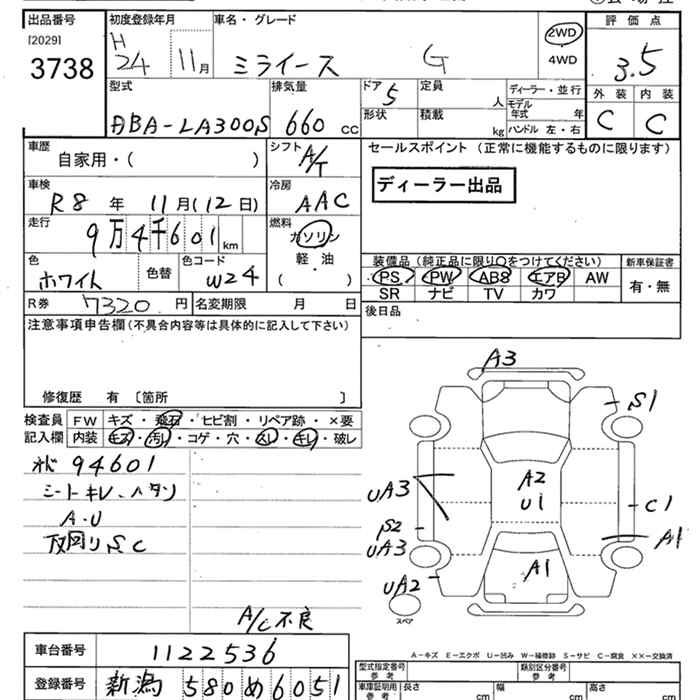 出品番号
[2029]
3738
初度登録年月
H
24 11月
車名・グレード
ミライース G
2WD
4WD
評価点
3.5
型式
ABA-LA300S
排気量
660 cc
ドア 5
形状
定員
人
積載
kg
ディーラー・並行
モデル
年式 年
ハンドル 左・右
外装 内装
C C
車歴
自家用・( )
シフト
A/T
セールスポイント (正常に機能するものに限ります)
ディーラー出品
車検
R8 年 11月(12日)
冷房
AAC
走行
9万4千601 km
燃料
ガソリン
軽油
( )
色
ホワイト
色替
色コード
W24
装備品 (純正品に限り○をつけてください)
新車保証書
PS PW ABS エアB AW
SR ナビ TV カワ
有・無
R券 7320円
名変期限 月 日
後日品
注意事項申告欄(不具合内容等は具体的に記入して下さい)
修復歴 有 [箇所 ]
検査員
記入欄
FW キズ・飛石・ヒビ割・リペア跡・×要
内装 キズ・汚レ・コゲ・穴・スレ・キレ・破レ
94601
シートキレ、ハタン
A・U
下回りSC
A/C不良
A3
S1
UA3
A2
U1
C1
S2
UA3
A1
UA2
A1
スペア
A-キズ E-エクボ U-凹み W-補修跡 S-サビ C-腐食 ××-交換済
車台番号
1122536
登録番号
新潟 580 め 6051
型式指定番号
参考
類別区分番号
参考
車庫証明用
参考
長さ cm
幅 cm
高さ cm